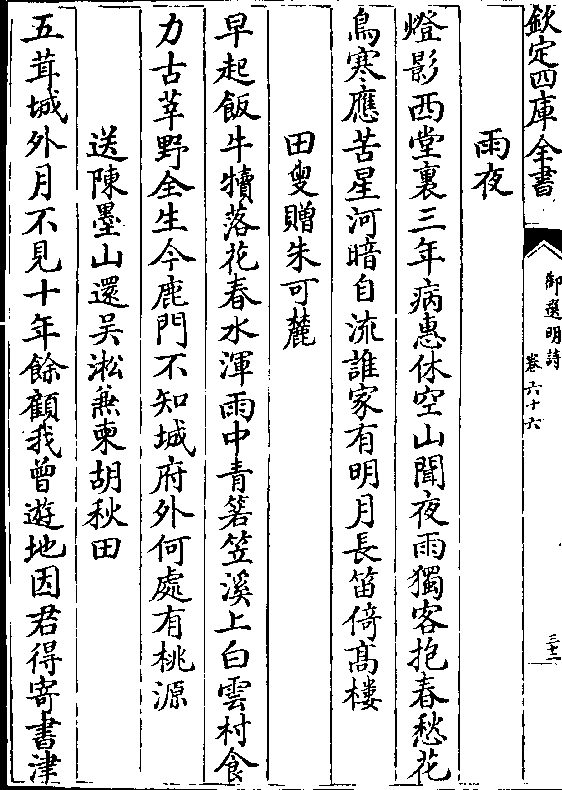 欽定四庫全書
御選明詩
卷六十六
三十二
雨夜
燈影西堂裏三年病惠休空山聞夜雨獨客抱春愁花
鳥寒應苦星河暗自流誰家有明月長笛倚髙樓
田叟贈朱可麓
早起飯牛犢落花春水渾雨中青箬笠溪上白雲村食
力古莘野全生今鹿門不知城府外何處有桃源
送陳墨山還吳淞兼柬胡秋田
五茸城外月不見十年餘顧我曾遊地因君得寄書津